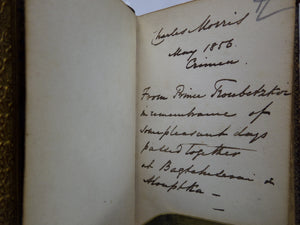 Charles Morris
May 1856
Crimea
From Prince Troubetzkoi
in remembrance of
some pleasant days
passed together
at Baghcheserai &
Aloupka —